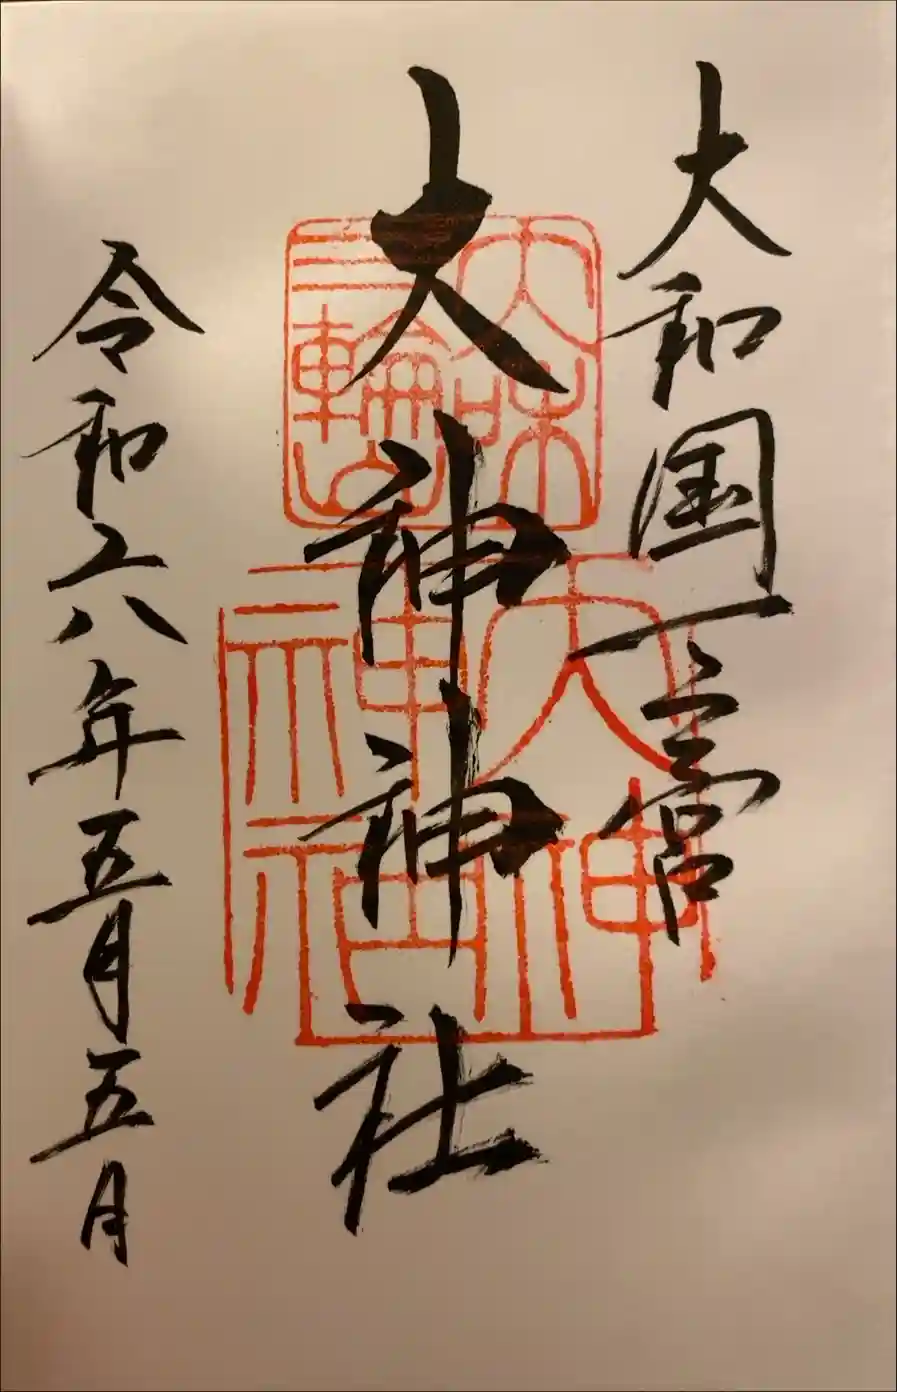 大和国一之宮
大神神社
令和元年五月五日
大和
三輪山
大神
神社